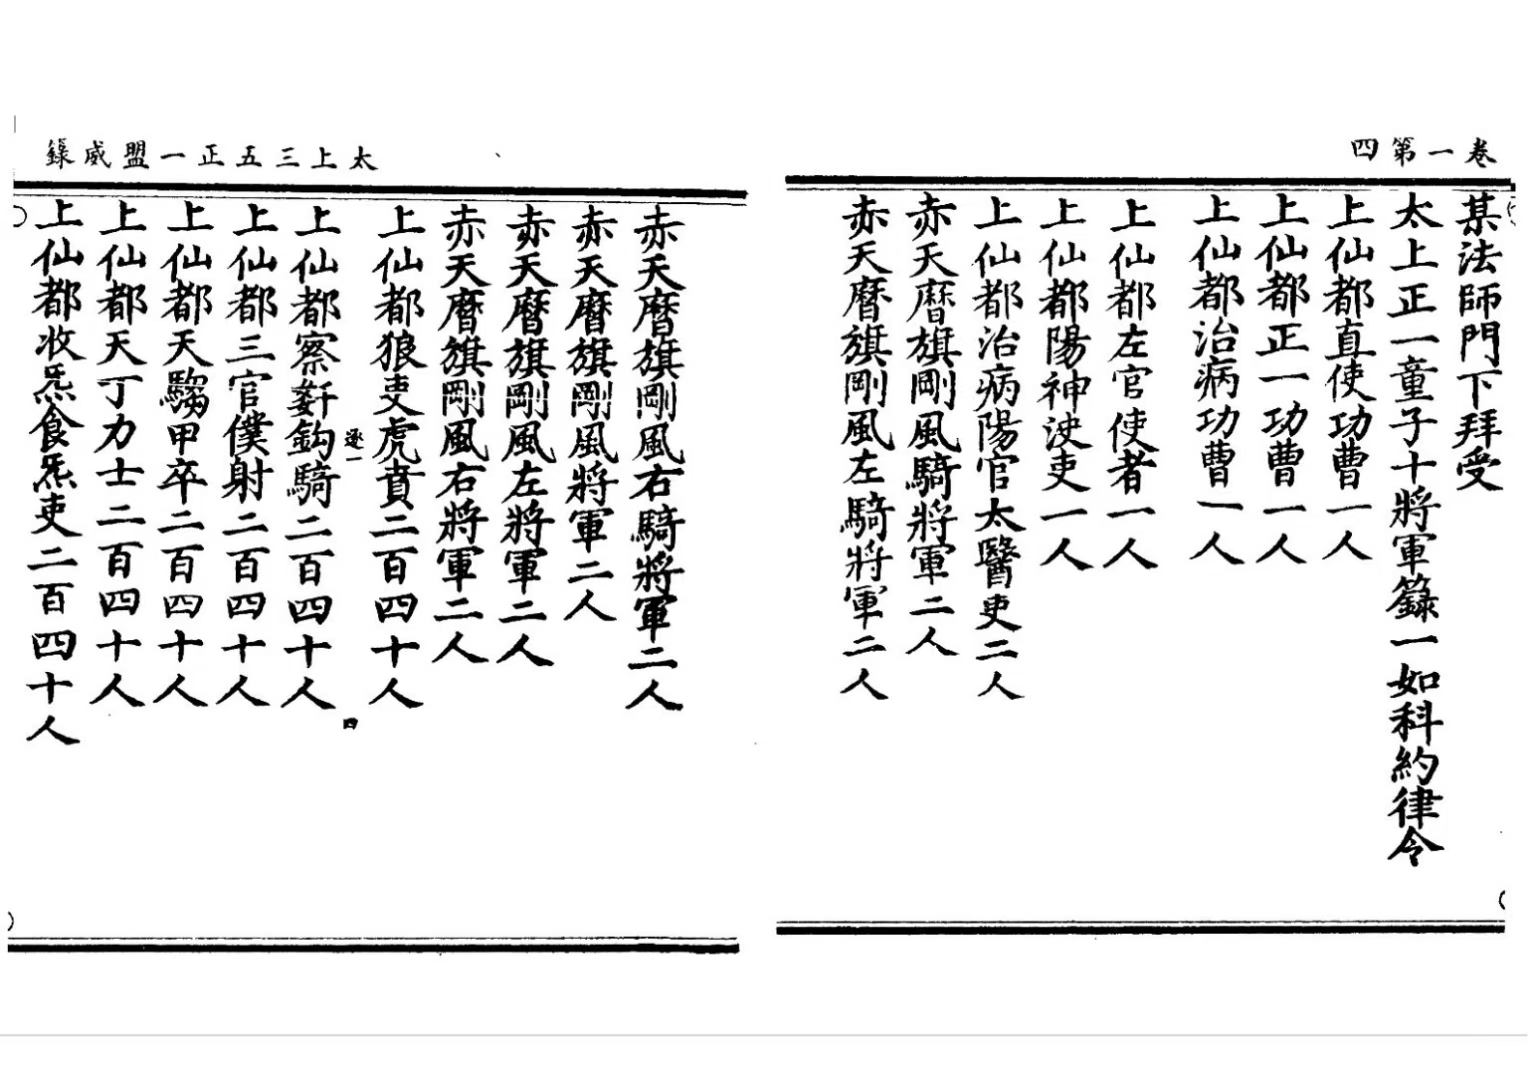 卷一第四
某法師門下拜受
太上正一童子十將軍籙一如科約律令
上仙都直使功曹一人
上仙都正一功曹一人
上仙都治病功曹一人
上仙都左官使者一人
上仙都陽神決吏一人
上仙都治病陽官太醫吏二人
赤天曆旗剛風騎將軍二人
赤天曆旗剛風左騎將軍二人
太上三五正一盟威籙
赤天曆旗剛風右騎將軍二人
赤天曆旗剛風將軍二人
赤天曆旗剛風左將軍二人
赤天曆旗剛風右將軍二人
上仙都狼吏虎賁二百四十人
逐一
四
上仙都察姧鈎騎二百四十人
上仙都三官僕射二百四十人
上仙都天騶甲卒二百四十人
上仙都天丁力士二百四十人
上仙都收炁食炁吏二百四十人